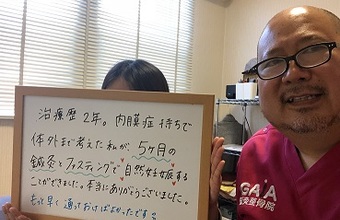 治療歴2年。内膜症持ちで
体外まで考えた私が、5ヶ月の
鍼灸とファスティングで自然妊娠する
ことができました。本当にありがとうございました。
もっと早く通っておけばよかったです
GAIA
整骨院